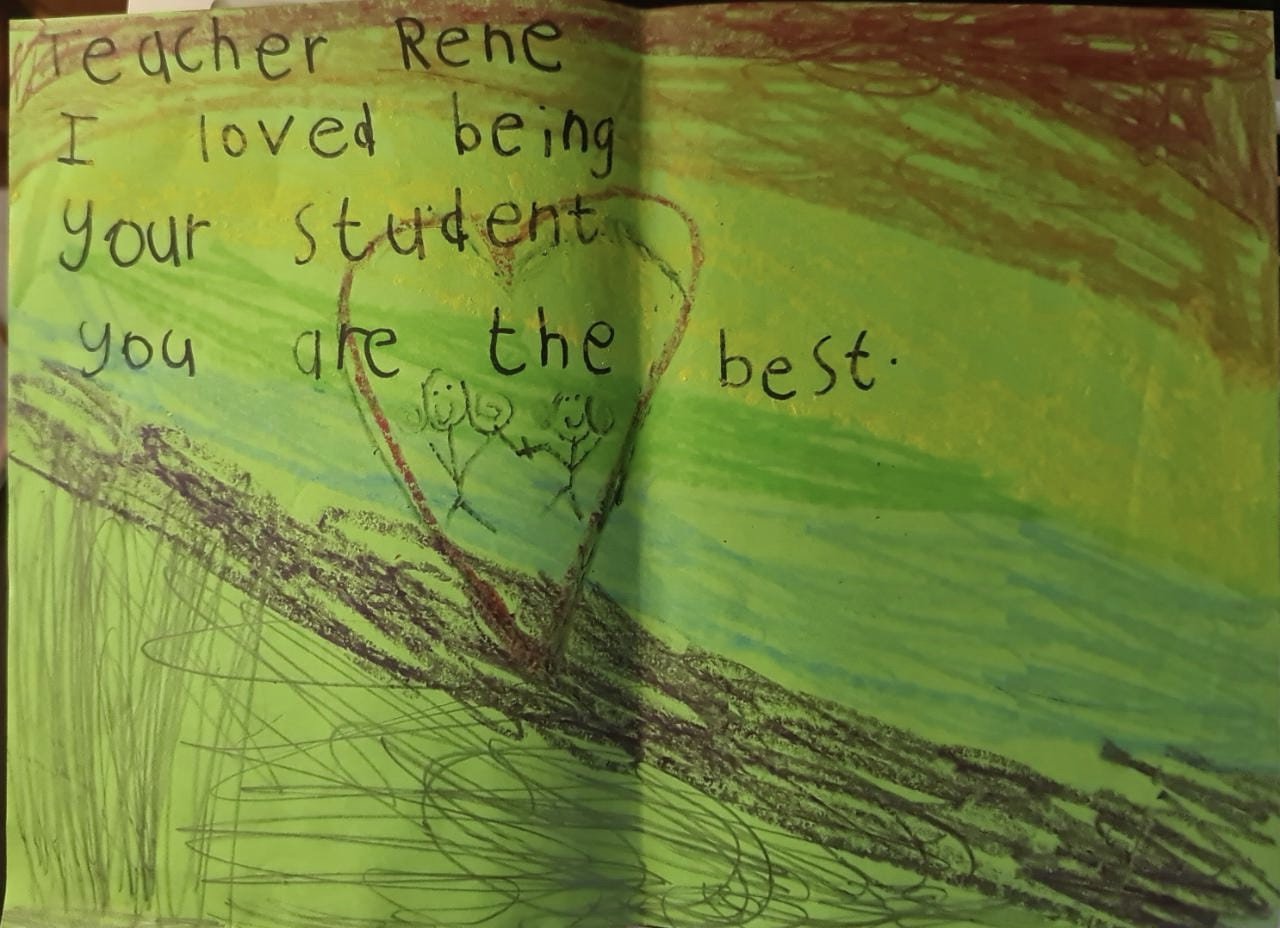 Teacher Rene
I loved being
your student
you are the best.